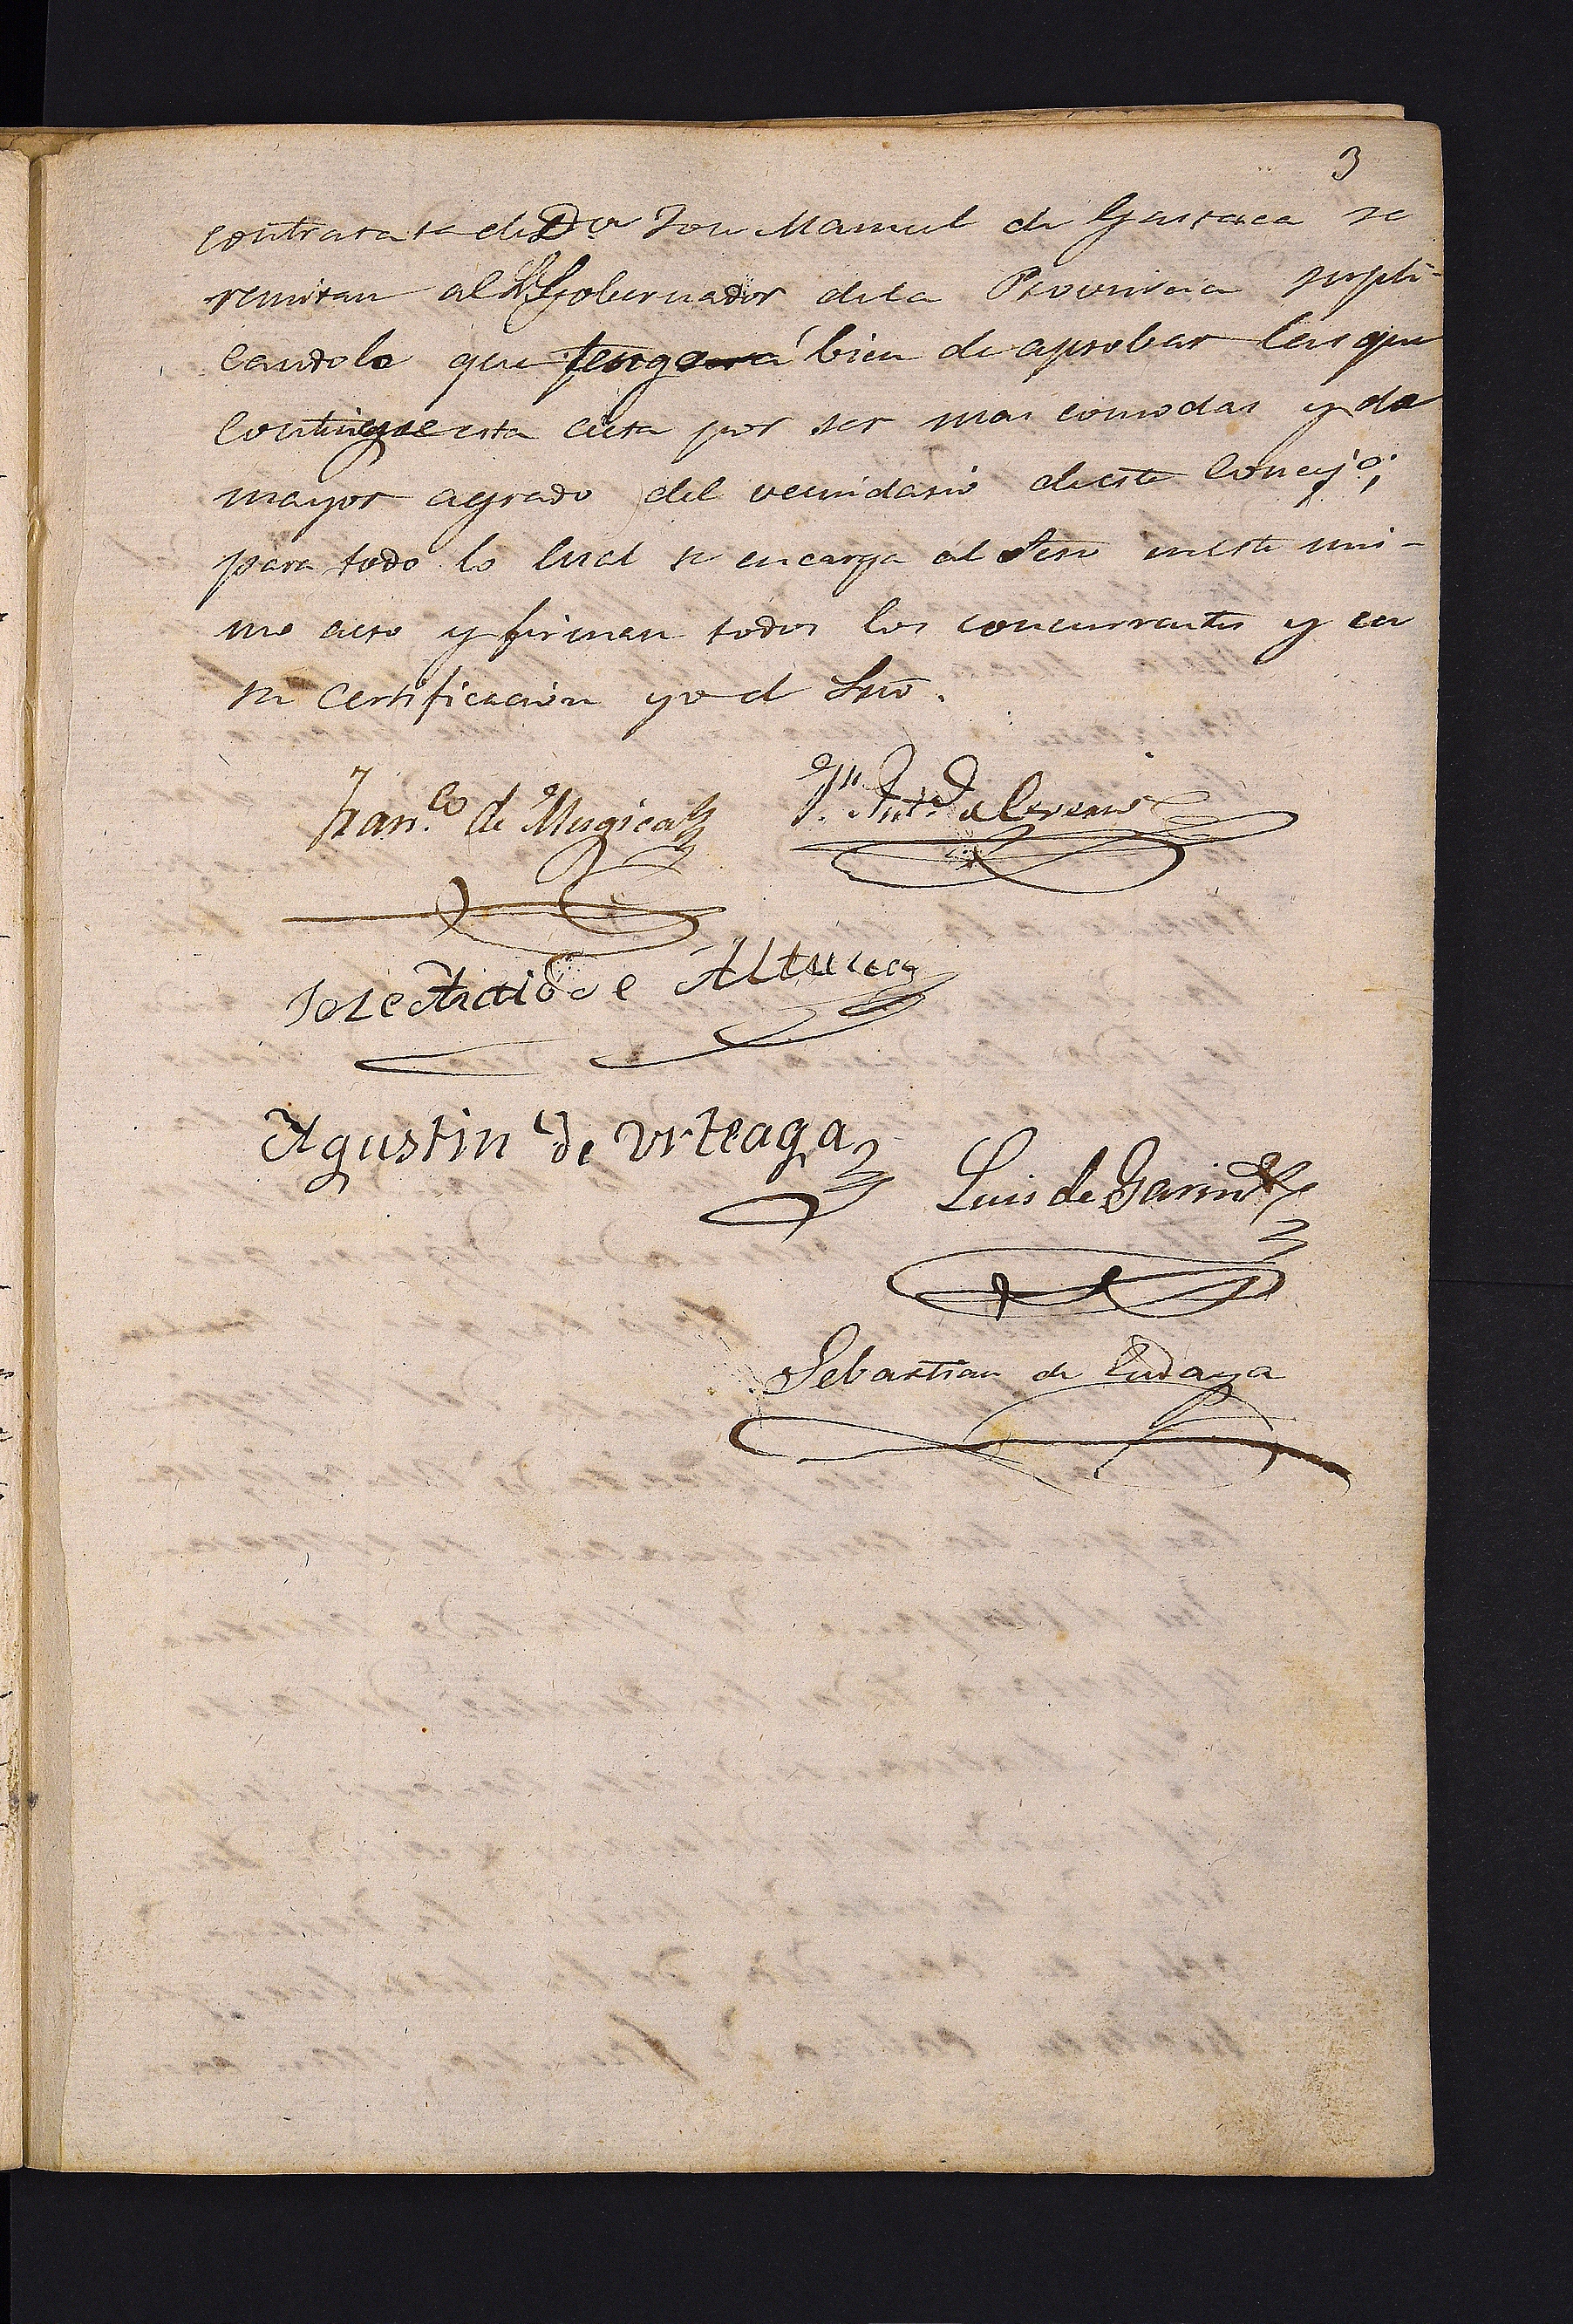 3
contrata de Dn Jose Manuel de Gastaca se
remitan al Sr Gobernador dela Provincia supli-
candole que tenga á bien de aprobar las que
contiene esta acta por ser mas comodas y de
mayor agrado del vecindario deeste Concejo;
para todo lo cual se encarga al Srio eneste mis-
mo acto y firman todos los concurrentes y en
su certificacion yo el Srio.
Fran.co de Mugica
Jn. Anto
Jose de Altuna
Agustin de Urteaga
Luis de Garin
Sebastian de